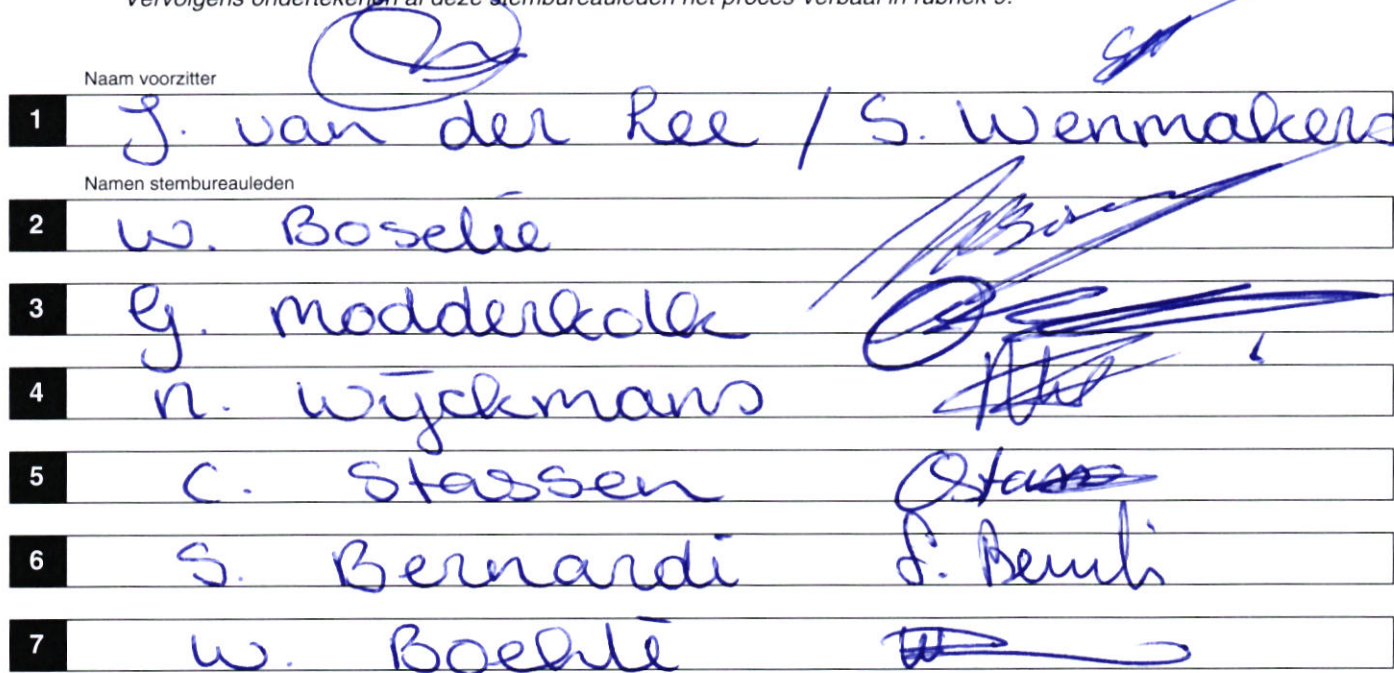 Vervolgens ondertekenen al deze stembureauleden het proces-verbaal in rubriek 9.
Naam voorzitter
1 J. van der Ree / S. Wenmakers
Namen stembureauleden
2 W. Boselie
3 G. Modderkolk
4 N. Wijckmans
5 C. Stassen
6 S. Bernardi S. Bernardi
7 W. Boehlé